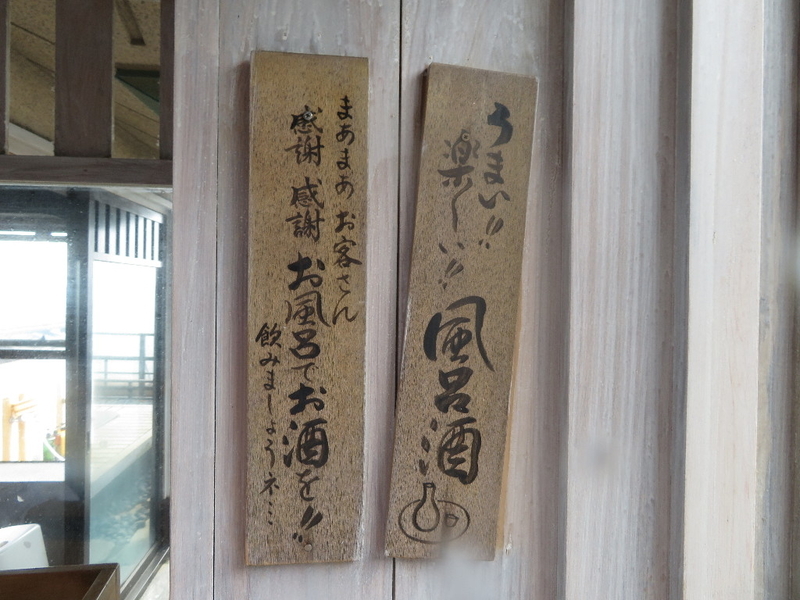 うまい!!
楽しい!!
風呂酒
まあまあ お客さん
感謝 感謝 お風呂でお酒を!!
飲みましょうネミ